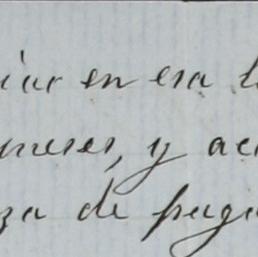 iar en esa l
meses, y ac
za de paga